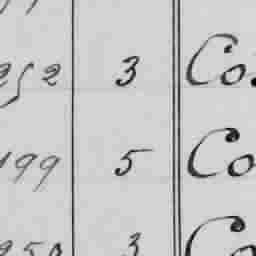 252 3 Co
199 5 Co
250 3 Co